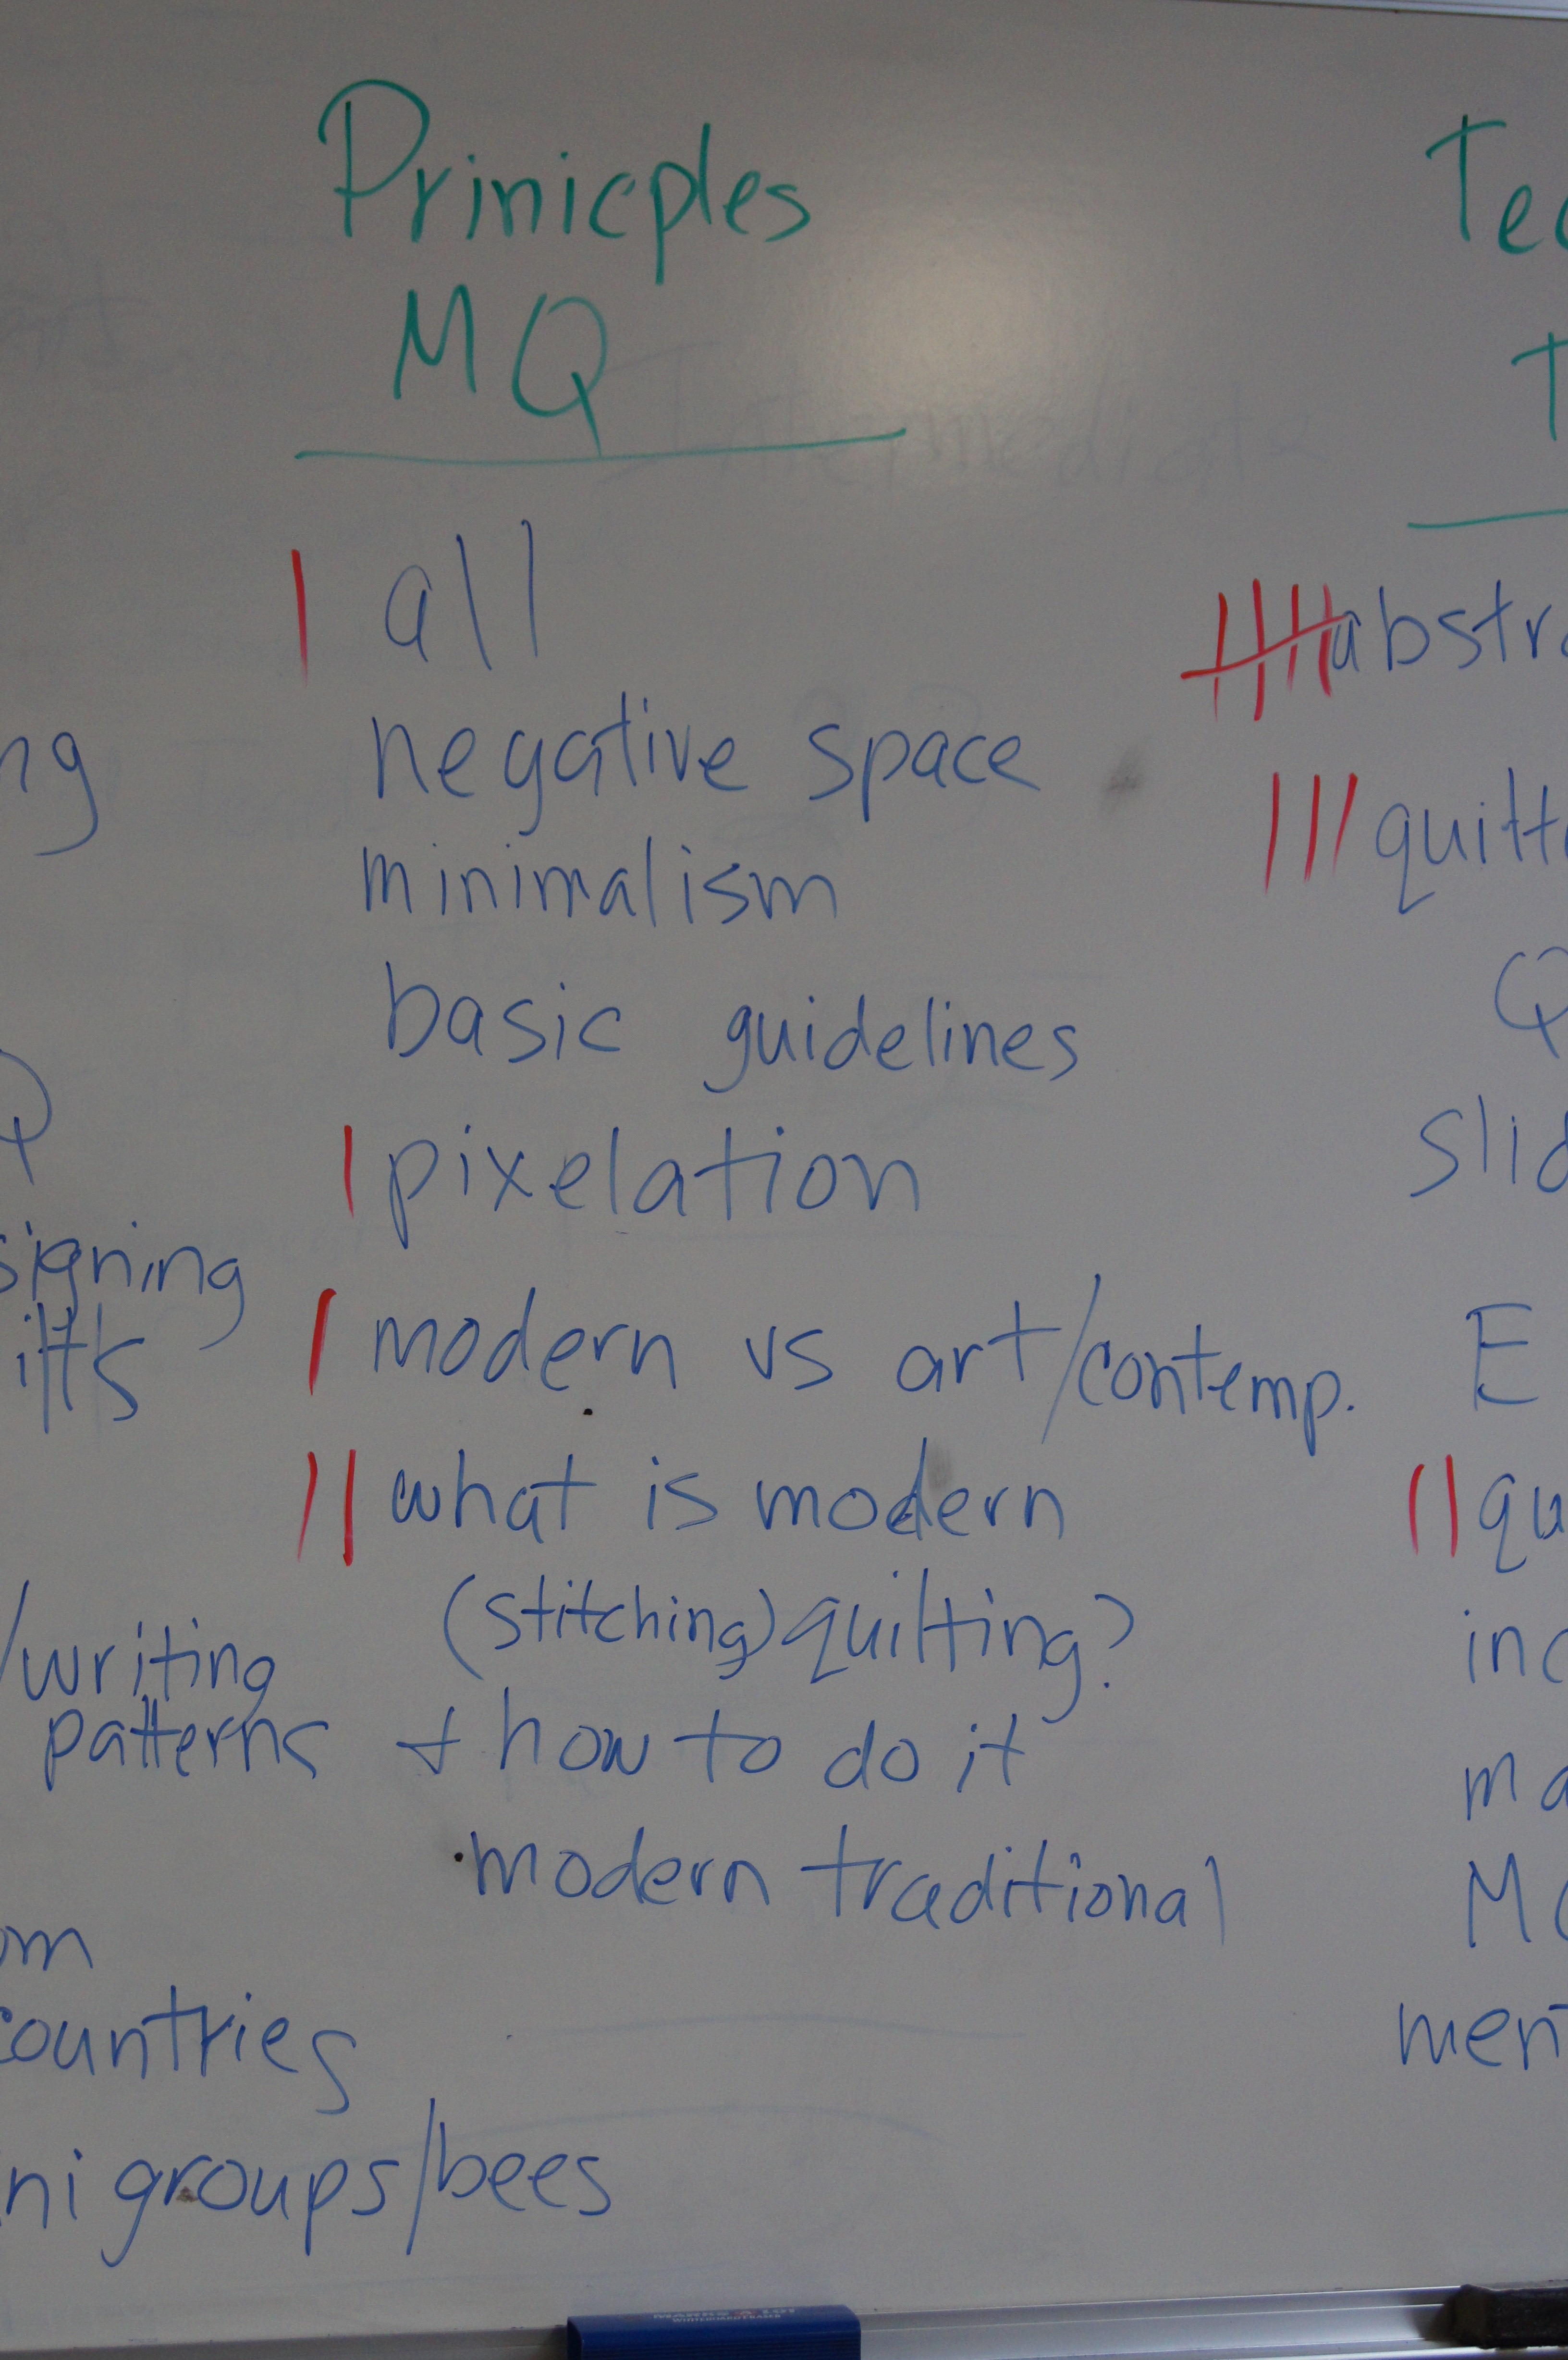 Prinicples
MQ
all
negative space
minimalism
basic guidelines
pixelation
modern vs art/contemp.
what is modern
(stitching) quilting?
+ how to do it
modern traditional
ng
Q
signing
ilts
/writing
patterns
om
countries
ni groups/bees
Tec
T
abstra
quilti
Q
slid
E
qu
inc
ma
MQ
ment
Intermediate